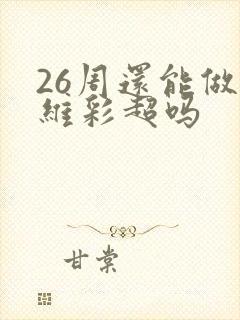 26周還能做
維彩超吗
甘棠